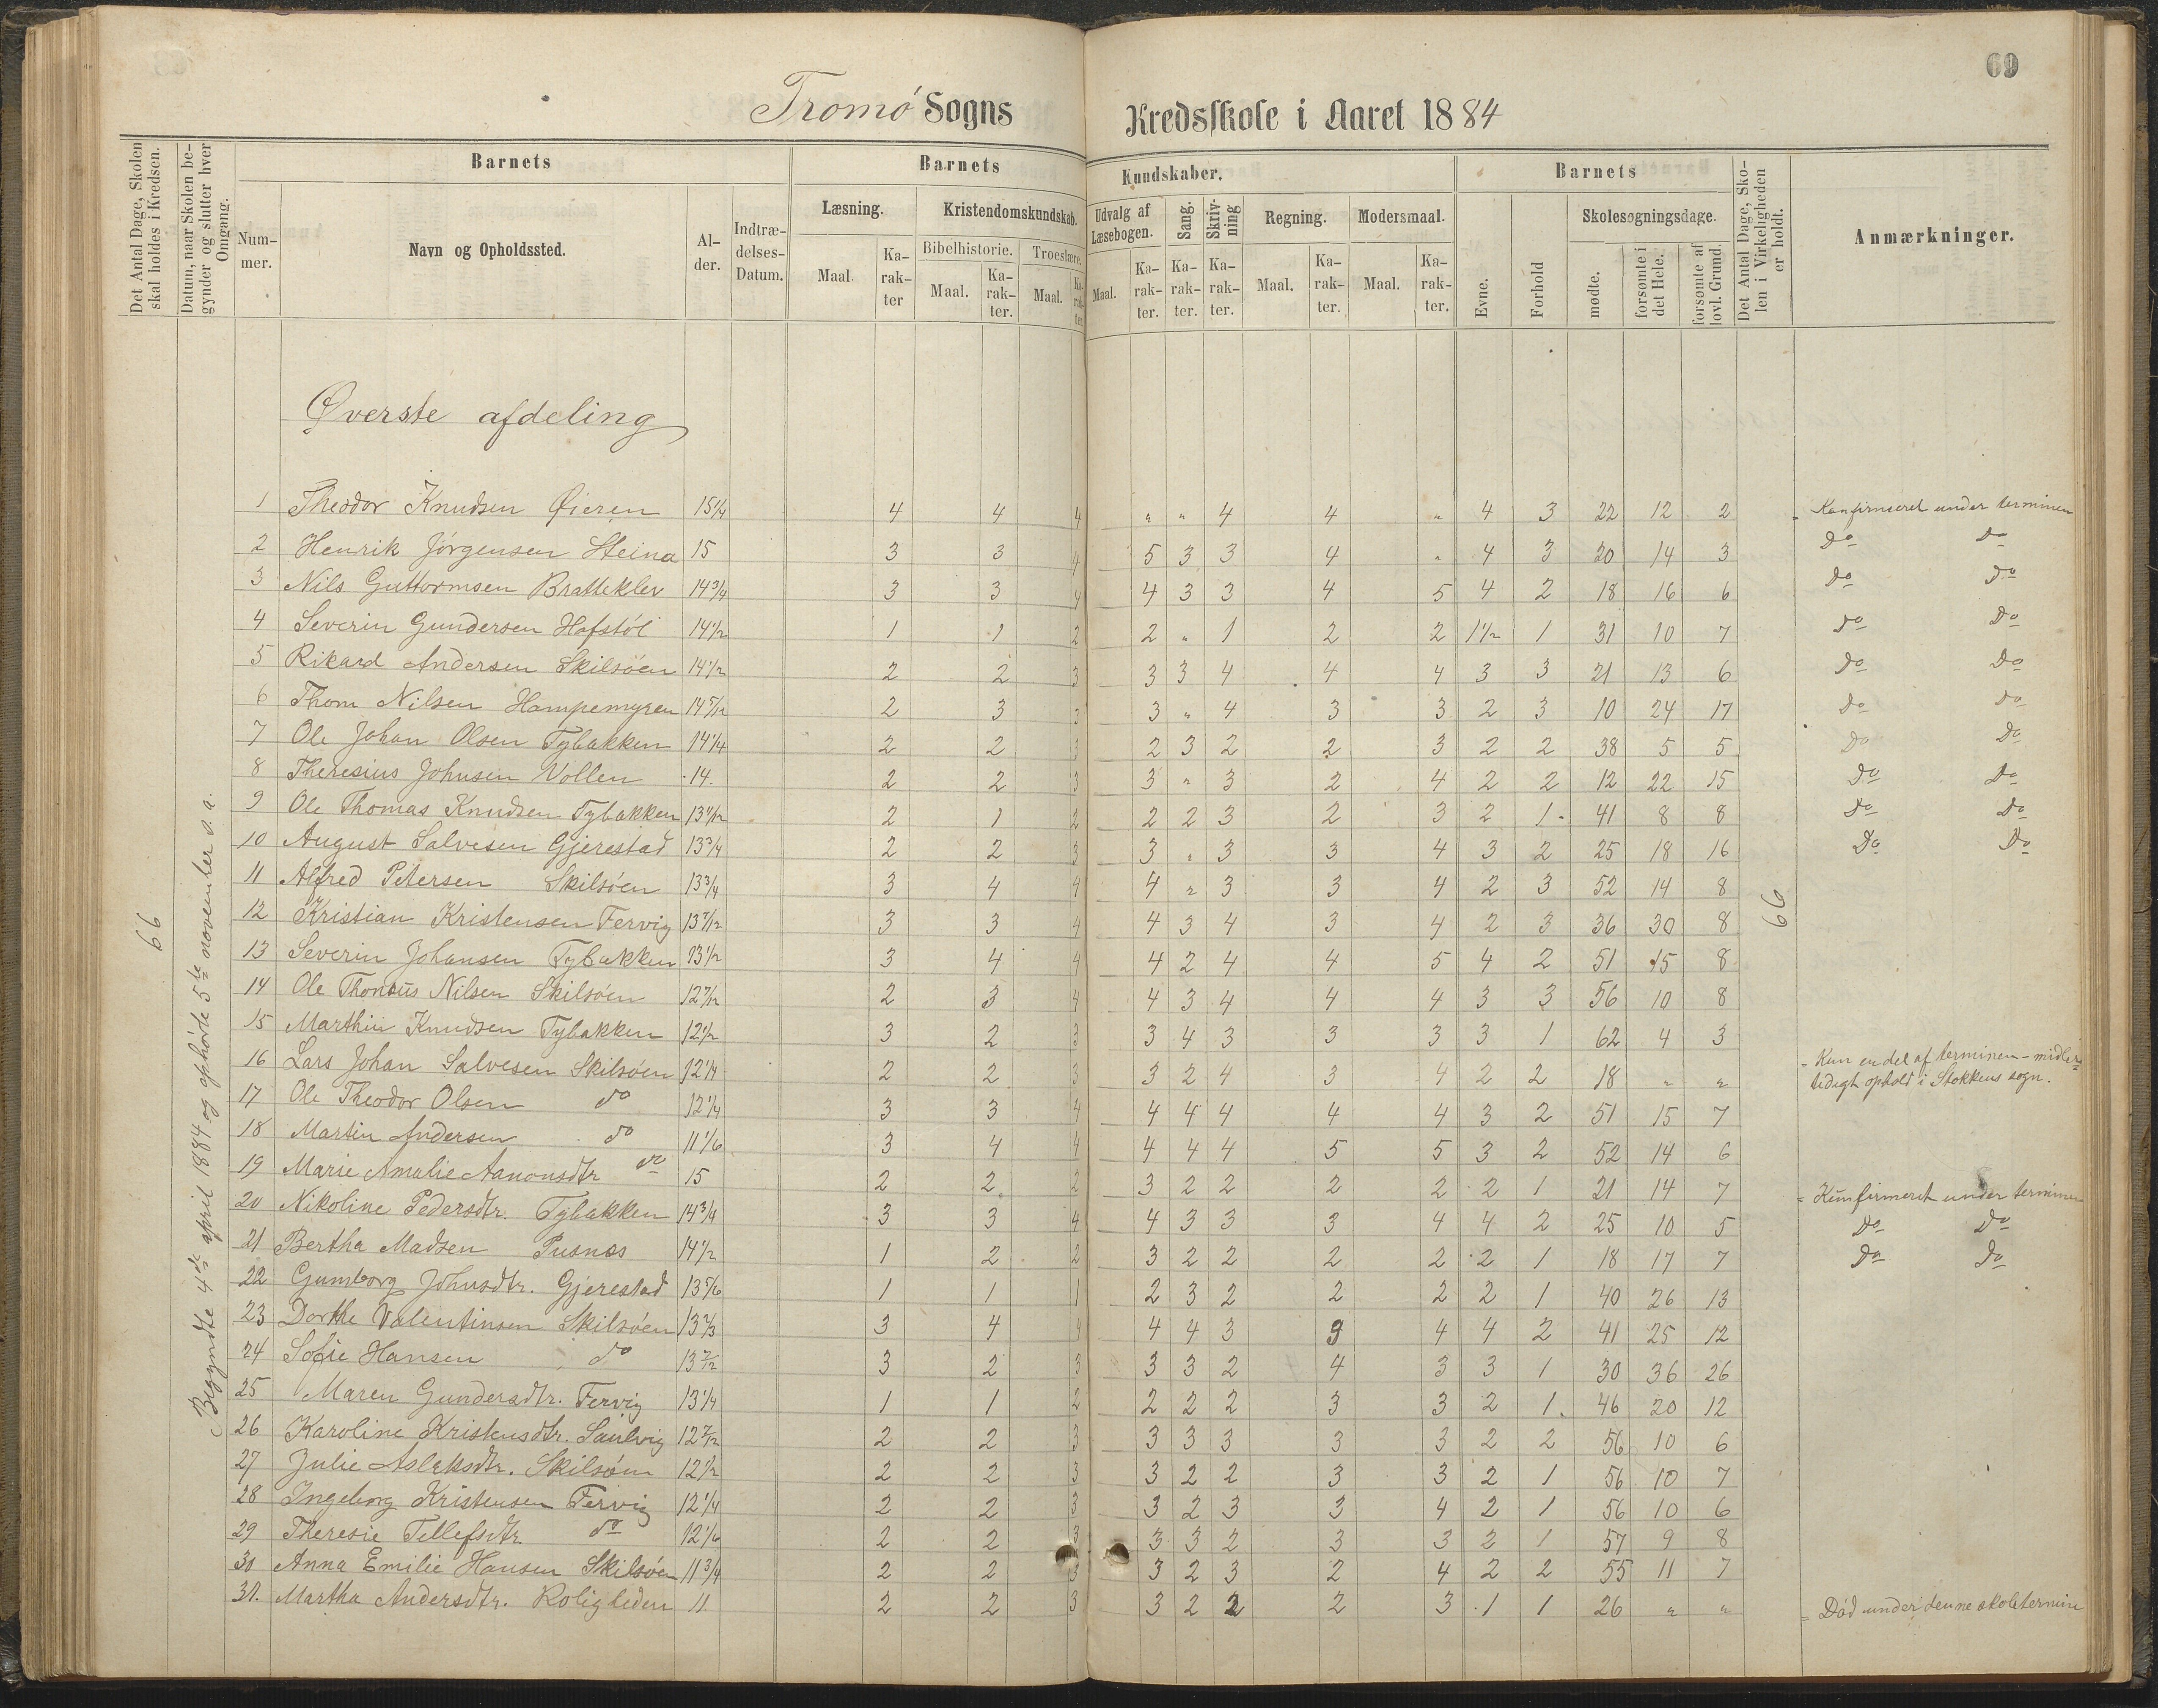 69
Tromø Sogns Kredsskole i Aaret 1884
Det Antal Dage, Skolen skal holdes i Kredsen.
Datum, naar Skolen begynder og slutter hver Omgang.
Barnets
Nummer.
Navn og Opholdssted.
Alder.
Indtrædelses-Datum.
Barnets Kundskaber.
Læsning. Maal. Karakter
Kristendomskundskab. Bibelhistorie. Maal. Karakter. Troeslære. Maal. Karakter
Udvalg af Læsebogen. Maal. Karakter.
Sang. Karakter.
Skrivning Karakter.
Regning. Maal. Karakter.
Modersmaal. Maal. Karakter.
Barnets
Evne.
Forhold
Skolesøgningsdage. mødte. forsømte i det Hele. forsømte af lovl. Grund.
Det Antal Dage, Skolen i Virkeligheden er holdt.
Anmærkninger.
Øverste afdeling
66
Begyndte 4de april 1884 og ophørte 5te november s. a.
66
1 Theodor Knudsen Øieren 15 1/4 4 4 4 " " 4 4 " 4 3 22 12 2 = Konfirmeret under terminen
2 Henrik Jørgensen Steina 15 3 3 4 5 3 3 4 " 4 3 20 14 3 Do Do
3 Nils Guttormsen Bratteklev 14 3/4 3 3 4 4 3 3 4 5 4 2 18 16 6 Do Do
4 Severin Gundersen Hafstøl 14 1/2 1 1 2 2 " 1 2 2 1 1/2 1 31 10 7 Do Do
5 Rikard Andersen Skilsøen 14 1/2 2 2 3 3 3 4 4 4 3 3 21 13 6 Do Do
6 Thom Nilsen Hampemyren 14 5/12 2 3 3 3 " 4 3 3 2 3 10 24 17 Do Do
7 Ole Johan Olsen Tybakken 14 1/4 2 2 3 2 3 2 2 3 2 2 38 5 5 Do Do
8 Theresius Johnsen Vollen 14. 2 2 3 3 " 3 2 4 2 2 12 22 15 Do Do
9 Ole Thomas Knudsen Tybakken 13 11/12 2 1 2 2 2 3 2 3 2 1 41 8 8 Do Do
10 August Salvesen Gjerestad 13 3/4 2 2 3 3 " 3 3 4 3 2 25 18 16 Do Do
11 Alfred Petersen Skilsøen 13 3/4 3 4 4 4 " 3 3 4 2 3 52 14 8
12 Kristian Kristensen Fervig 13 7/12 3 3 4 4 3 4 3 4 2 3 36 30 8
13 Severin Johansen Tybakken 13 1/2 3 4 4 4 2 4 4 5 4 2 51 15 8
14 Ole Thonius Nilsen Skilsøen 12 7/12 2 3 4 4 3 4 4 4 3 3 56 10 8
15 Marthin Knudsen Tybakken 12 1/2 3 2 3 3 4 3 3 3 3 1 62 4 3
16 Lars Johan Salvesen Skilsøen 12 1/4 2 2 3 3 2 4 3 4 2 2 18 " " = Kun en del af terminen – midler-
tidigt ophold i Stokkens sogn.
17 Ole Theodor Olsen do 12 1/4 3 3 4 4 4 4 4 4 3 2 51 15 7
18 Martin Andersen do 11 1/6 3 4 4 4 4 4 5 5 3 2 52 14 6
19 Marie Amalie Aanonsdtr do 15 2 2 2 3 2 2 2 2 2 1 21 14 7 = Kunfirmeret under terminen
20 Nikoline Pedersdtr. Tybakken 14 3/4 3 3 4 4 3 3 3 4 4 2 25 10 5 Do Do
21 Bertha Madsen Pusnæs 14 1/2 1 2 2 3 2 2 2 2 2 1 18 17 7 Do Do
22 Gumborg Johnsdtr. Gjerestad 13 5/6 1 1 1 2 3 2 2 2 2 1 40 26 13
23 Dorthe Valentinsen Skilsøen 13 2/3 3 4 4 4 4 3 9 4 4 2 41 25 12
24 Sofie Hansen do 13 7/12 3 2 3 3 3 2 4 3 3 1 30 36 26
25 Maren Gundersdtr. Fervig 13 1/4 1 1 2 2 2 2 3 3 2 1. 46 20 12
26 Karoline Kristensdtr. Saulvig 12 7/12 2 2 3 3 3 3 3 3 2 2 56 10 6
27 Julie Aslaksdtr. Skilsøen 12 1/2 2 2 3 3 2 2 3 3 2 1 56 10 7
28 Ingeborg Kristensen Fervig 12 1/4 2 2 3 3 2 3 3 4 2 1 56 10 6
29 Theresie Tellefsdtr. do 12 1/6 2 2 3 3 3 2 3 3 2 1 57 9 8
30 Anna Emilie Hansen Skilsøen 11 3/4 2 2 3 3 2 3 2 4 2 2 55 11 7
31. Martha Andersdtr. Roligheden 11 2 2 3 3 2 2 2 3 1 1 26 " " = Død under denne skoletermin